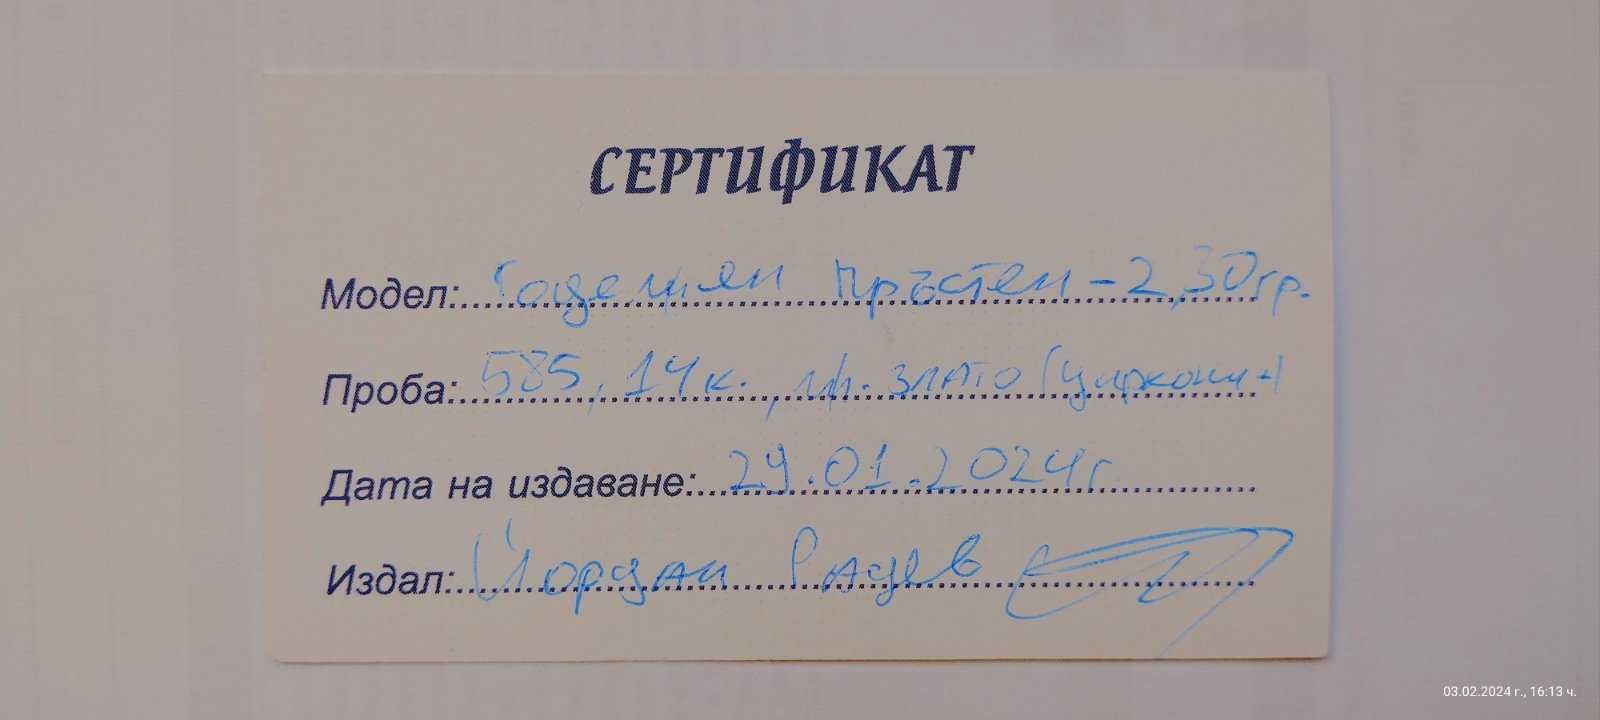 СЕРТИФИКАТ
Модел: Годежен пръстен - 2,30гр.
Проба: 585, 14к., злато (циркони)
Дата на издаване: 29.01.2024г
Издал: Йордан Радев
03.02.2024 г., 16:13 ч.